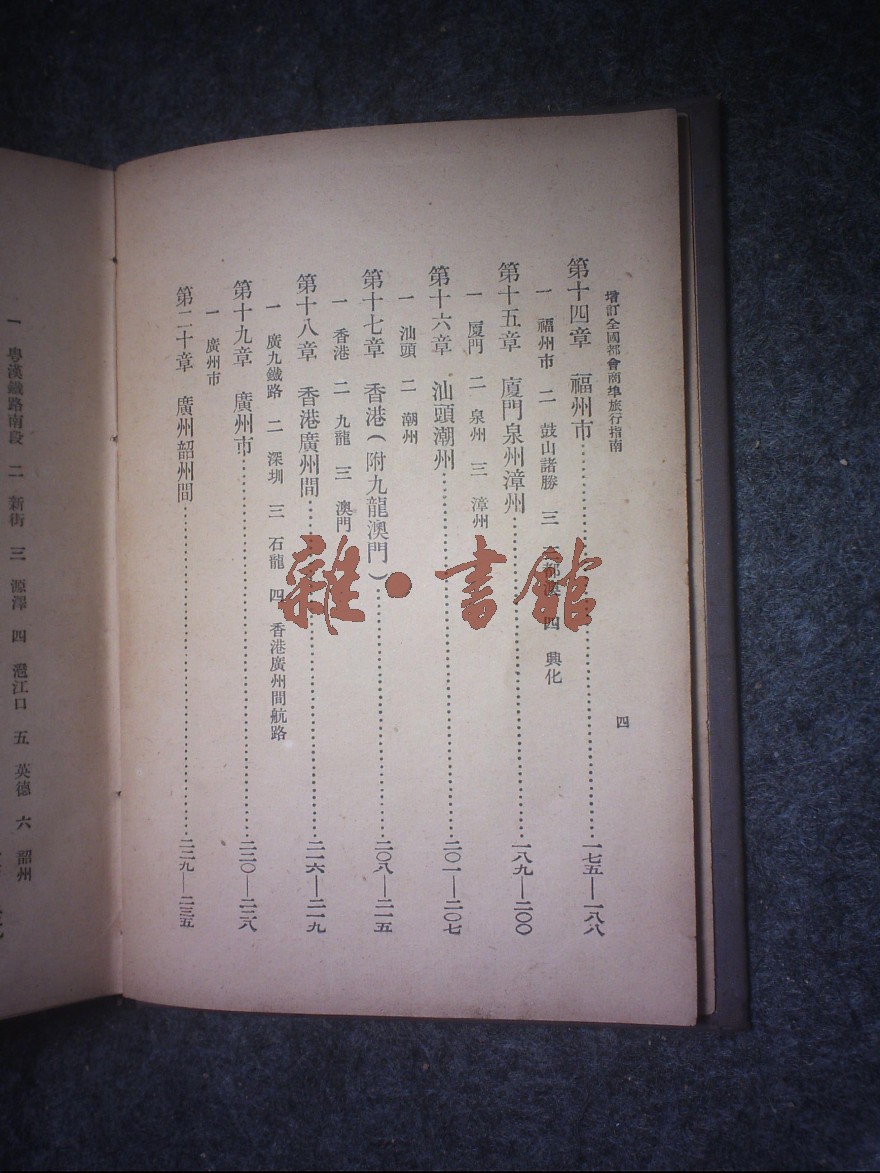 增訂全國都會商埠旅行指南
四
第十四章 福州市……一七五—一八八
一 福州市 二 鼓山諸勝 三 三都澳 四 興化
第十五章 廈門泉州漳州……一八九—二〇〇
一 廈門 二 泉州 三 漳州
第十六章 汕頭潮州……二〇一—二〇七
一 汕頭 二 潮州
第十七章 香港(附九龍澳門)……二〇八—二一五
一 香港 二 九龍 三 澳門
第十八章 香港廣州間……二一六—二一九
一 廣九鐵路 二 深圳 三 石龍 四 香港廣州間航路
第十九章 廣州市……二二〇—二二八
一 廣州市
第二十章 廣州韶州間……二二九—二三五
一 粵漢鐵路南段 二 新街 三 源潭 四 連江口 五 英德 六 韶州
雜·書館